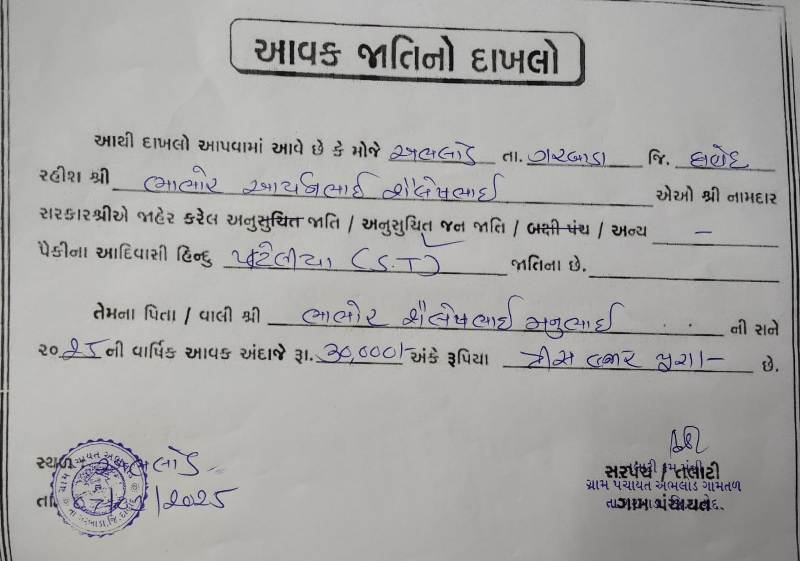 આવક જાતિનો દાખલો
આથી દાખલો આપવામાં આવે છે કે મોજે અભલોડ તા. ગરબાડા જિ. દાહોદ
રહીશ શ્રી ભાભોર આર્યનભાઈ શૈલેષભાઈ એઓ શ્રી નામદાર
સરકારશ્રીએ જાહેર કરેલ અનુસુચિત જાતિ / અનુસુચિત જન જાતિ / બક્ષી પંચ / અન્ય –
પૈકીના આદિવાસી હિન્દુ પટેલીયા (S.T) જાતિના છે.
તેમના પિતા / વાલી શ્રી ભાભોર શૈલેષભાઈ મનુભાઈ ની સને
૨૦૨૫ ની વાર્ષિક આવક અંદાજે રૂા. 30,000/- અંકે રૂપિયા ત્રીસ હજાર પુરા/- છે.
સ્થળ: અભલોડ
તા. /2025
સરપંચ / તલાટી
ગ્રામ પંચાયત અભલોડ ગામતળ
ગ્રામ પંચાયત